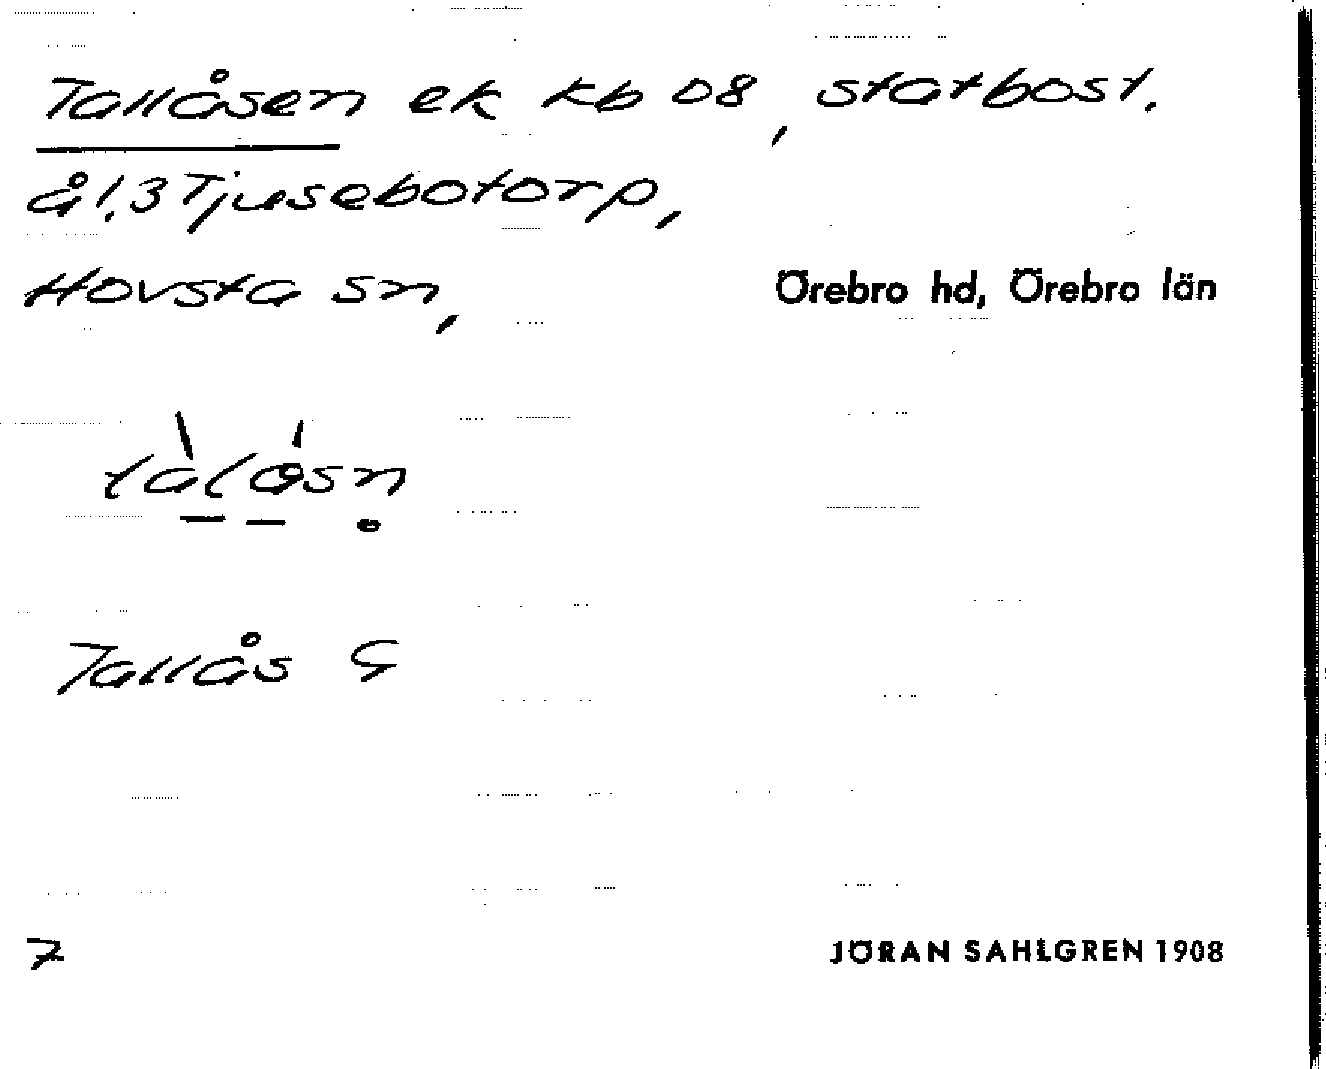 Tallåsen ek kb 08, statbost.
å 1,3 Tjusebotorp,
Hovsta sn, Örebro hd, Örebro län
tàlåsn
Tallås G
7
JÖRAN SAHLGREN 1908